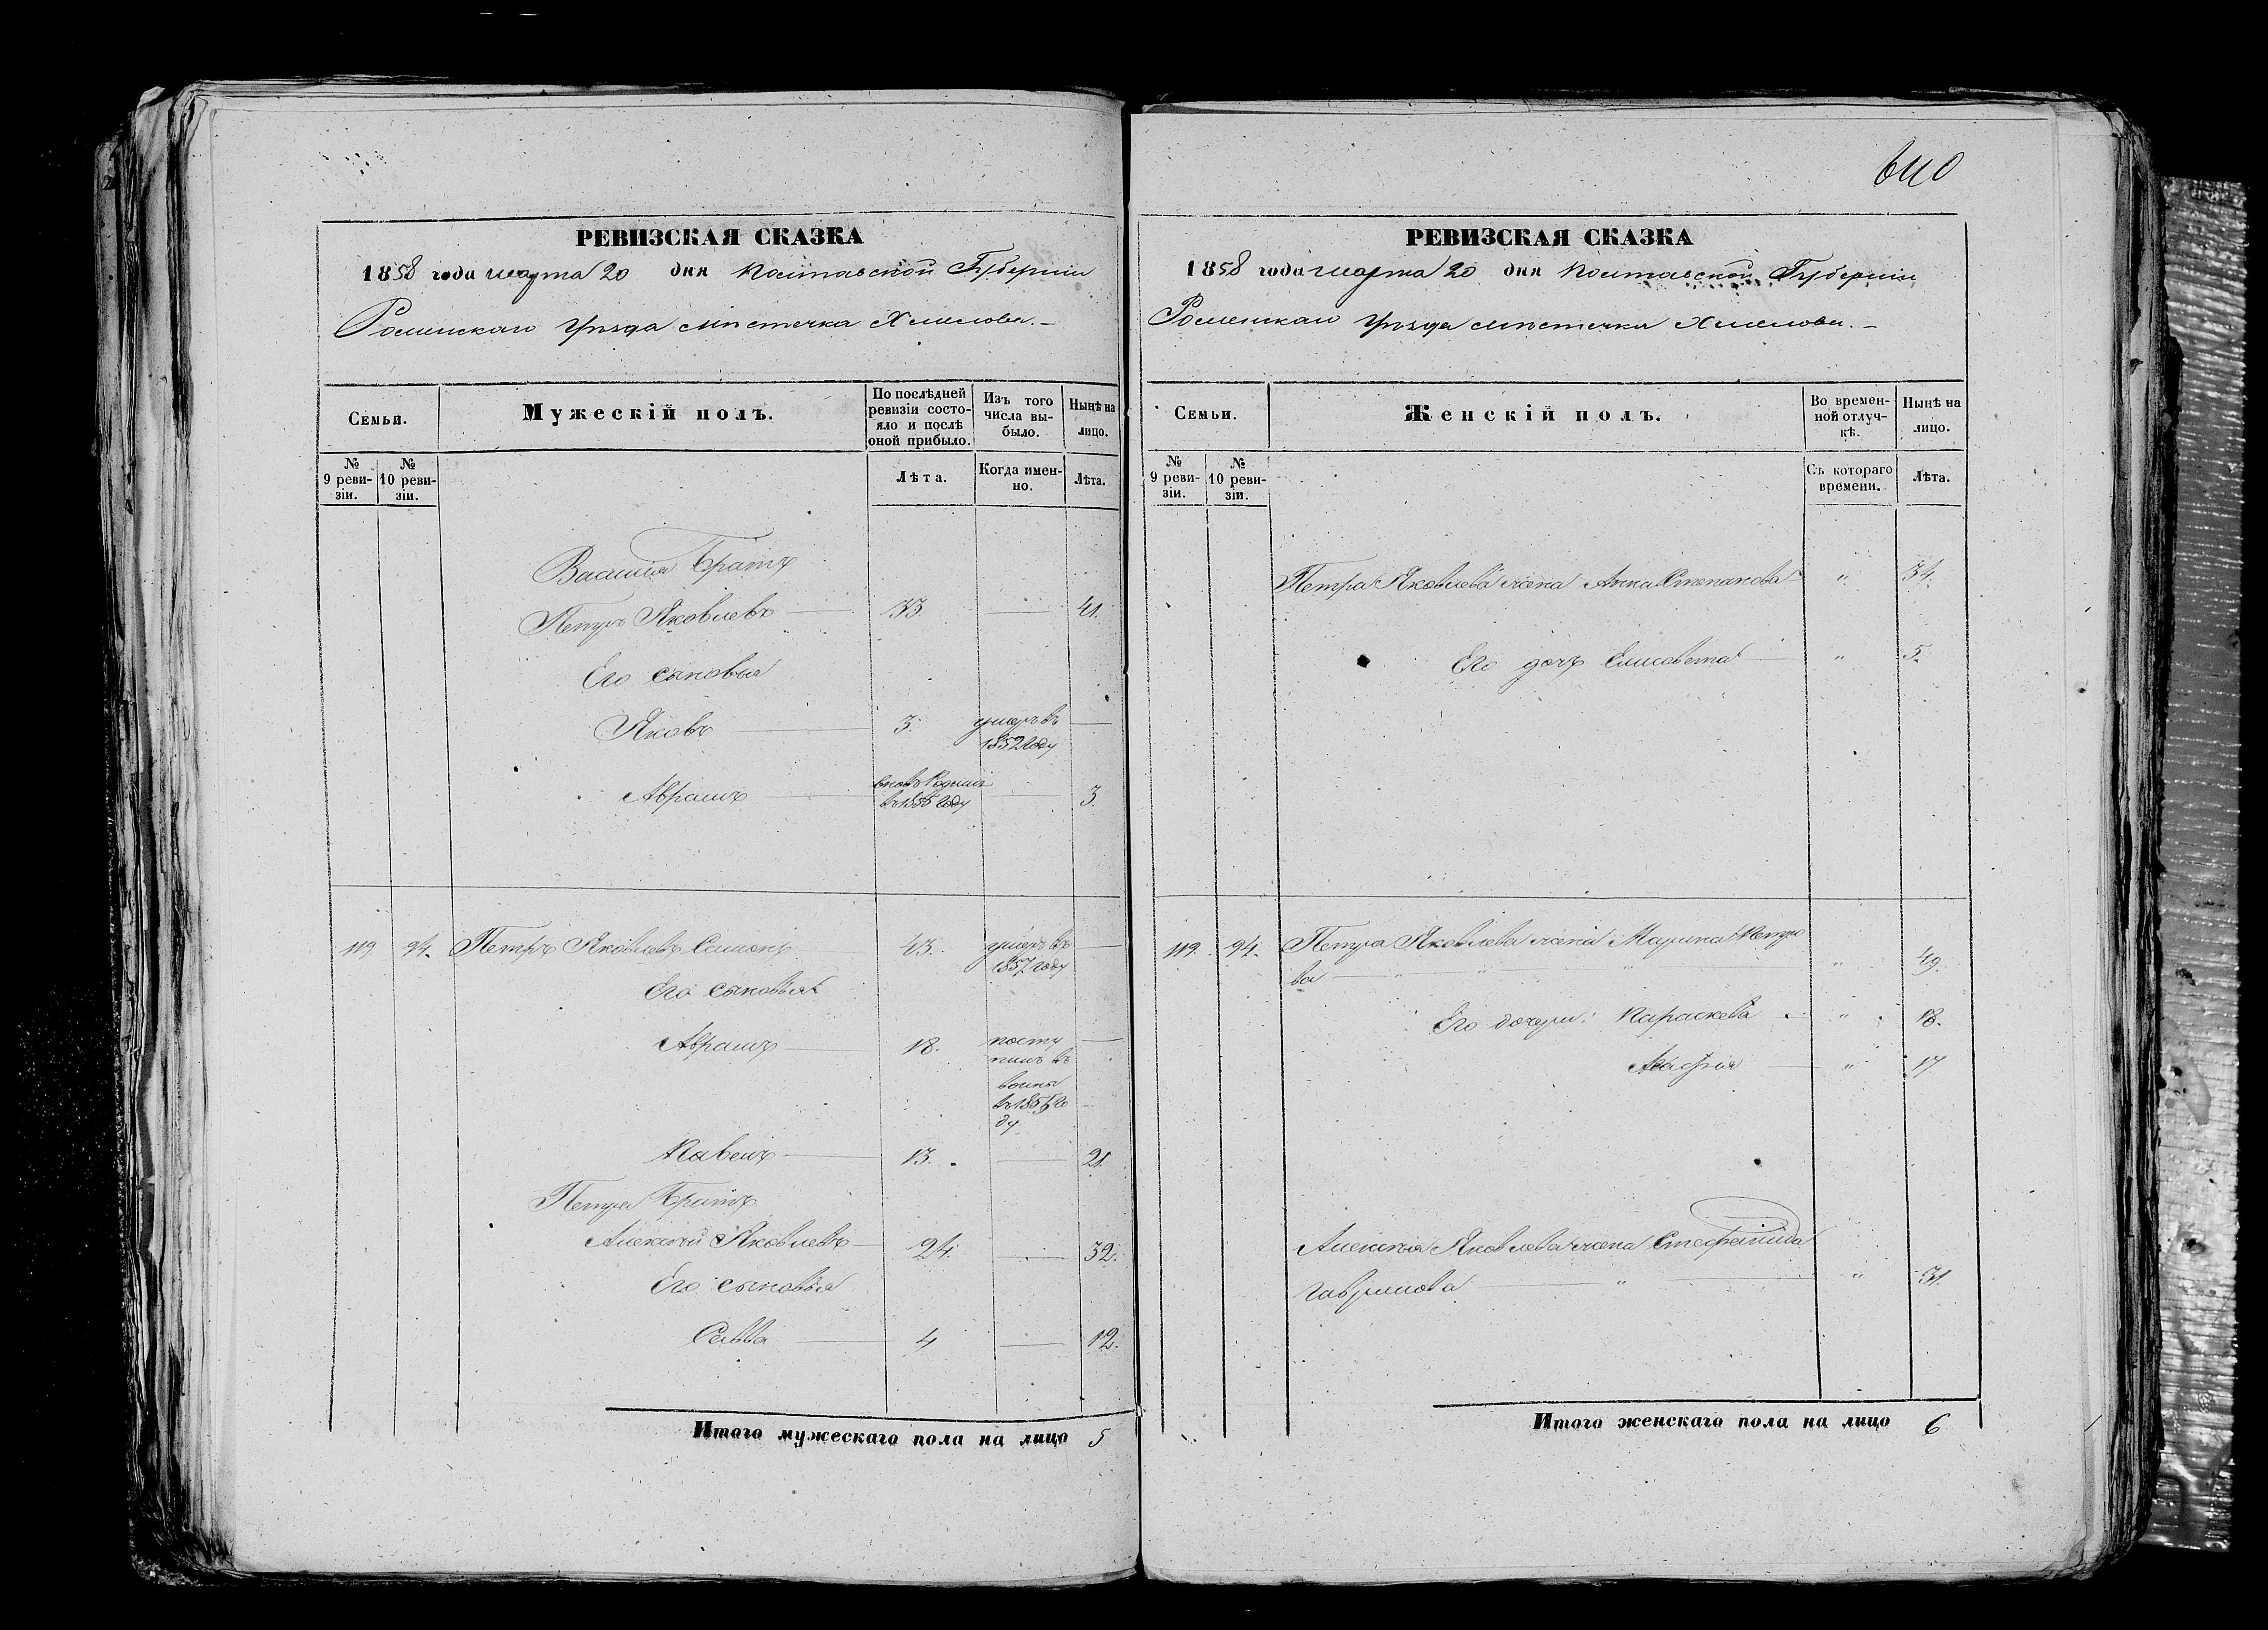 640
РЕВИЗСКАЯ СКАЗКА
1858 года марта 20 дня Полтавской Губерніи
Роменскаго Уѣзда мѣстечка Хмелова.
Семьи.
Мужескій полъ.
По послѣдней ревизіи состояло и послѣ оной прибыло.
Изъ того числа выбыло.
Нынѣ на лицо.
№ 9 ревизіи.
№ 10 ревизіи.
Лѣта.
Когда именно.
Лѣта.
Василія Братъ
Петръ Яковлевъ 33 41.
Его сыновья
Яковъ 3. умеръ въ
1852 году
Аврамъ вновь 3.
119 94. Петръ Яковлевъ 43. умеръ въ
1857 году
Его сыновья
Аврамъ 18. посту
пилъ въ
Павелъ 13. 21.
Петра Братъ
Алексѣй Яковлевъ 24. 32.
Его сыновья
Савва 4 12.
Итого мужескаго пола на лицо 5
РЕВИЗСКАЯ СКАЗКА
1858 года марта 20 дня Полтавской Губерніи
Роменскаго Уѣзда мѣстечка Хмелова.
Семьи.
Женскій полъ.
Во временной отлучкѣ.
Нынѣ на лицо.
№ 9 ревизіи.
№ 10 ревизіи.
Съ котораго времени.
Лѣта.
Петра Яковлева жена Анна Степанова " 34.
Его дочь Елисавета " 5.
119. 94. Петра Яковлева жена Марина Петро
ва " 49.
Его дочери: Параскева " 18.
" 17
Алексѣя Яковлева жена
Гаврилова " " 31.
Итого женскаго пола на лицо 6